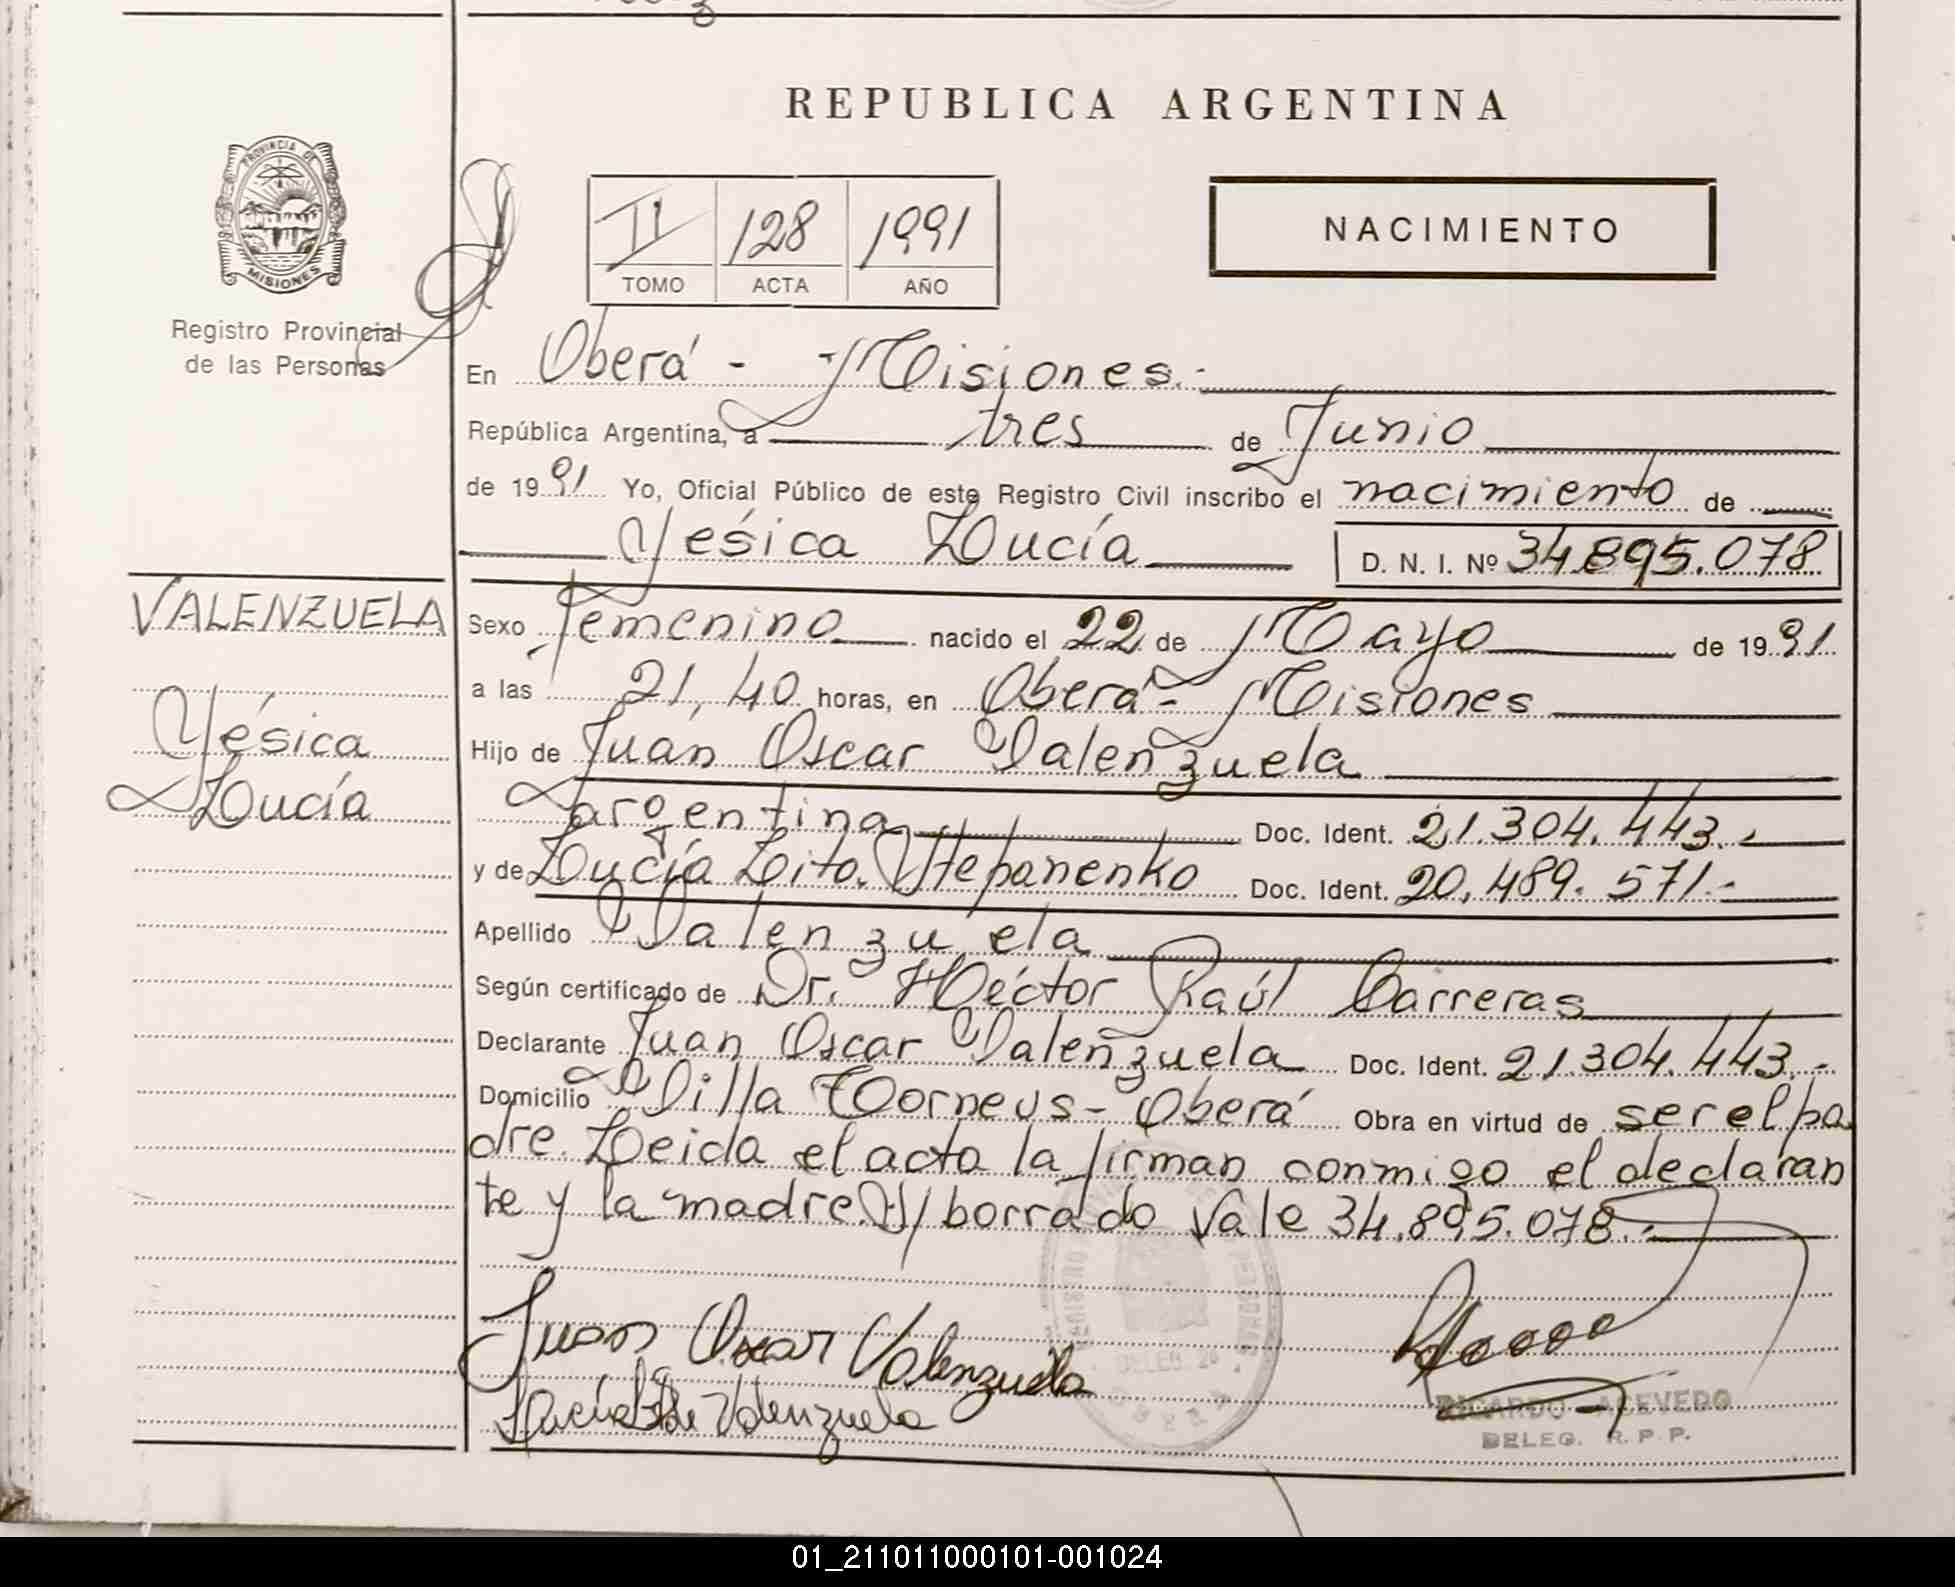 REPUBLICA ARGENTINA
PROVINCIA DE
MISIONES
Registro Provincial
de las Personas
II 128 1991
TOMO ACTA AÑO
NACIMIENTO
En Oberá - Misiones.-
República Argentina, a tres de Junio
de 1991 Yo, Oficial Público de este Registro Civil inscribo el nacimiento de
Yésica Lucía D. N. I. Nº 34.895.078
VALENZUELA
Yésica
Lucía
Sexo femenino nacido el 22 de Mayo de 1991
a las 21,40 horas, en Oberá - Misiones
Hijo de Juan Oscar Valenzuela
argentina Doc. Ident. 21.304.443.-
y de Lucía Lita Stepanenko Doc. Ident. 20.489.571.-
Apellido Valenzuela
Según certificado de Dr. Héctor Raúl Carreras
Declarante Juan Oscar Valenzuela Doc. Ident. 21.304.443.-
Domicilio Villa Torneus - Oberá Obra en virtud de ser el pa
dre. Leida el acta la firman conmigo el declaran
te y la madre. S/ borrado Vale 34.895.078.-
Juan Oscar Valenzuela
de Valenzuela
DELEG.
RICARDO ACEVEDO
DELEG. R. P. P.
01_211011000101-001024